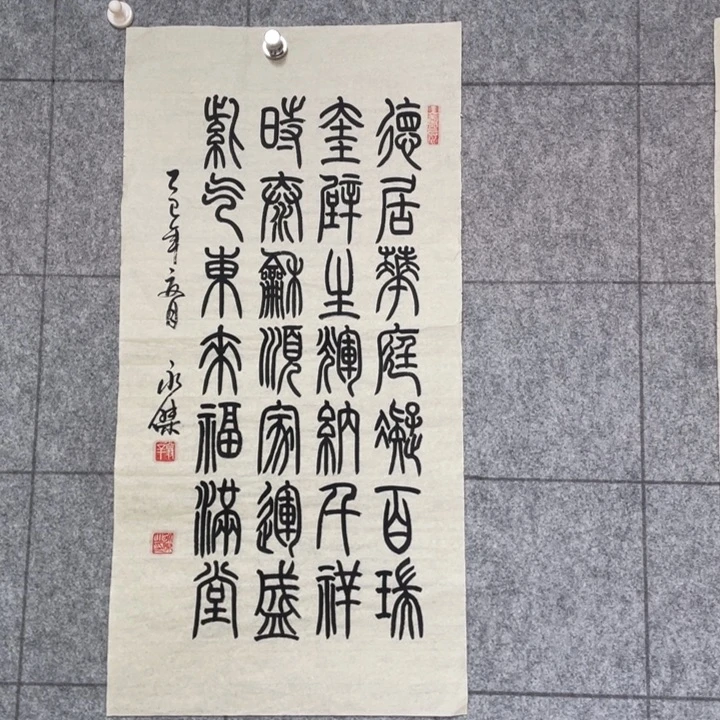 德居華庭凝百瑞
奎壁生輝納千祥
時泰龢順家運盛
紫气東來福滿堂
乙巳年夏月 永傑